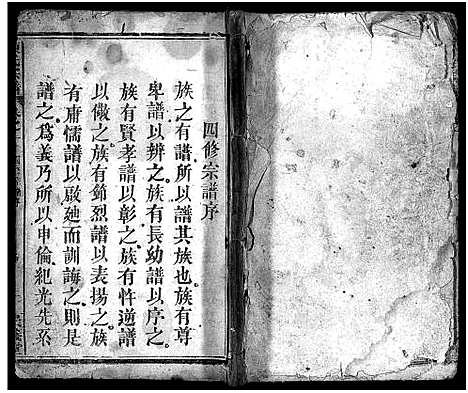 四修宗譜序
族之有譜所以譜其族也族有尊
卑譜以辨之族有長幼譜以序之
族有賢孝譜以彰之族有忤逆譜
以儆之族有節烈譜以表揚之族
有庸懦譜以啟廸而訓誨之則是
譜之為義乃所以申倫紀光先系